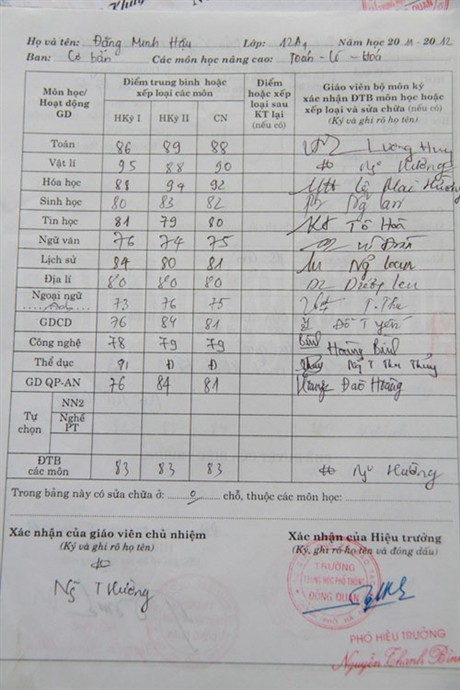 Họ và tên: Đặng Minh Hậu Lớp: 12A1 Năm học 2011 - 2012
Ban: Cơ bản Các môn học nâng cao: Toán - Lí - Hoá
Môn học/ Hoạt động GD
Điểm trung bình hoặc xếp loại các môn
Điểm hoặc xếp loại sau KT lại (nếu có)
Giáo viên bộ môn ký xác nhận ĐTB môn học hoặc xếp loại và sửa chữa (nếu có)
(Ký và ghi rõ họ tên)
HKỳ I HKỳ II CN
Toán 86 89 88 Lương Huy
Vật lí 95 88 90 Ngô Hường
Hóa học 88 94 92 Lê Mai Hường
Sinh học 80 83 82 Ng An
Tin học 81 79 80 Tô Hoà
Ngữ văn 76 74 75
Lịch sử 84 80 81 Ng Loan
Địa lí 80 80 80 Dương Len
Ngoại ngữ Anh 73 76 75 T. Thu
GDCD 76 84 81 Đỗ T Yến
Công nghệ 78 79 79 Hoàng Bính
Thể dục Đ Đ Ng T Thu Thủy
GD QP-AN 76 84 81 Đào Hoàng
Tự chọn
NN2
Nghề PT
ĐTB các môn 83 83 83 Ngô Hường
Trong bảng này có sửa chữa ở: 0 chỗ, thuộc các môn học:
Xác nhận của giáo viên chủ nhiệm
(Ký và ghi rõ họ tên)
Ng T Hường
Xác nhận của Hiệu trưởng
(Ký, ghi rõ họ tên và đóng dấu)
TRƯỜNG
TRUNG HỌC PHỔ THÔNG
ĐỒNG QUAN
PHÓ HIỆU TRƯỞNG
Nguyễn Thanh Bình